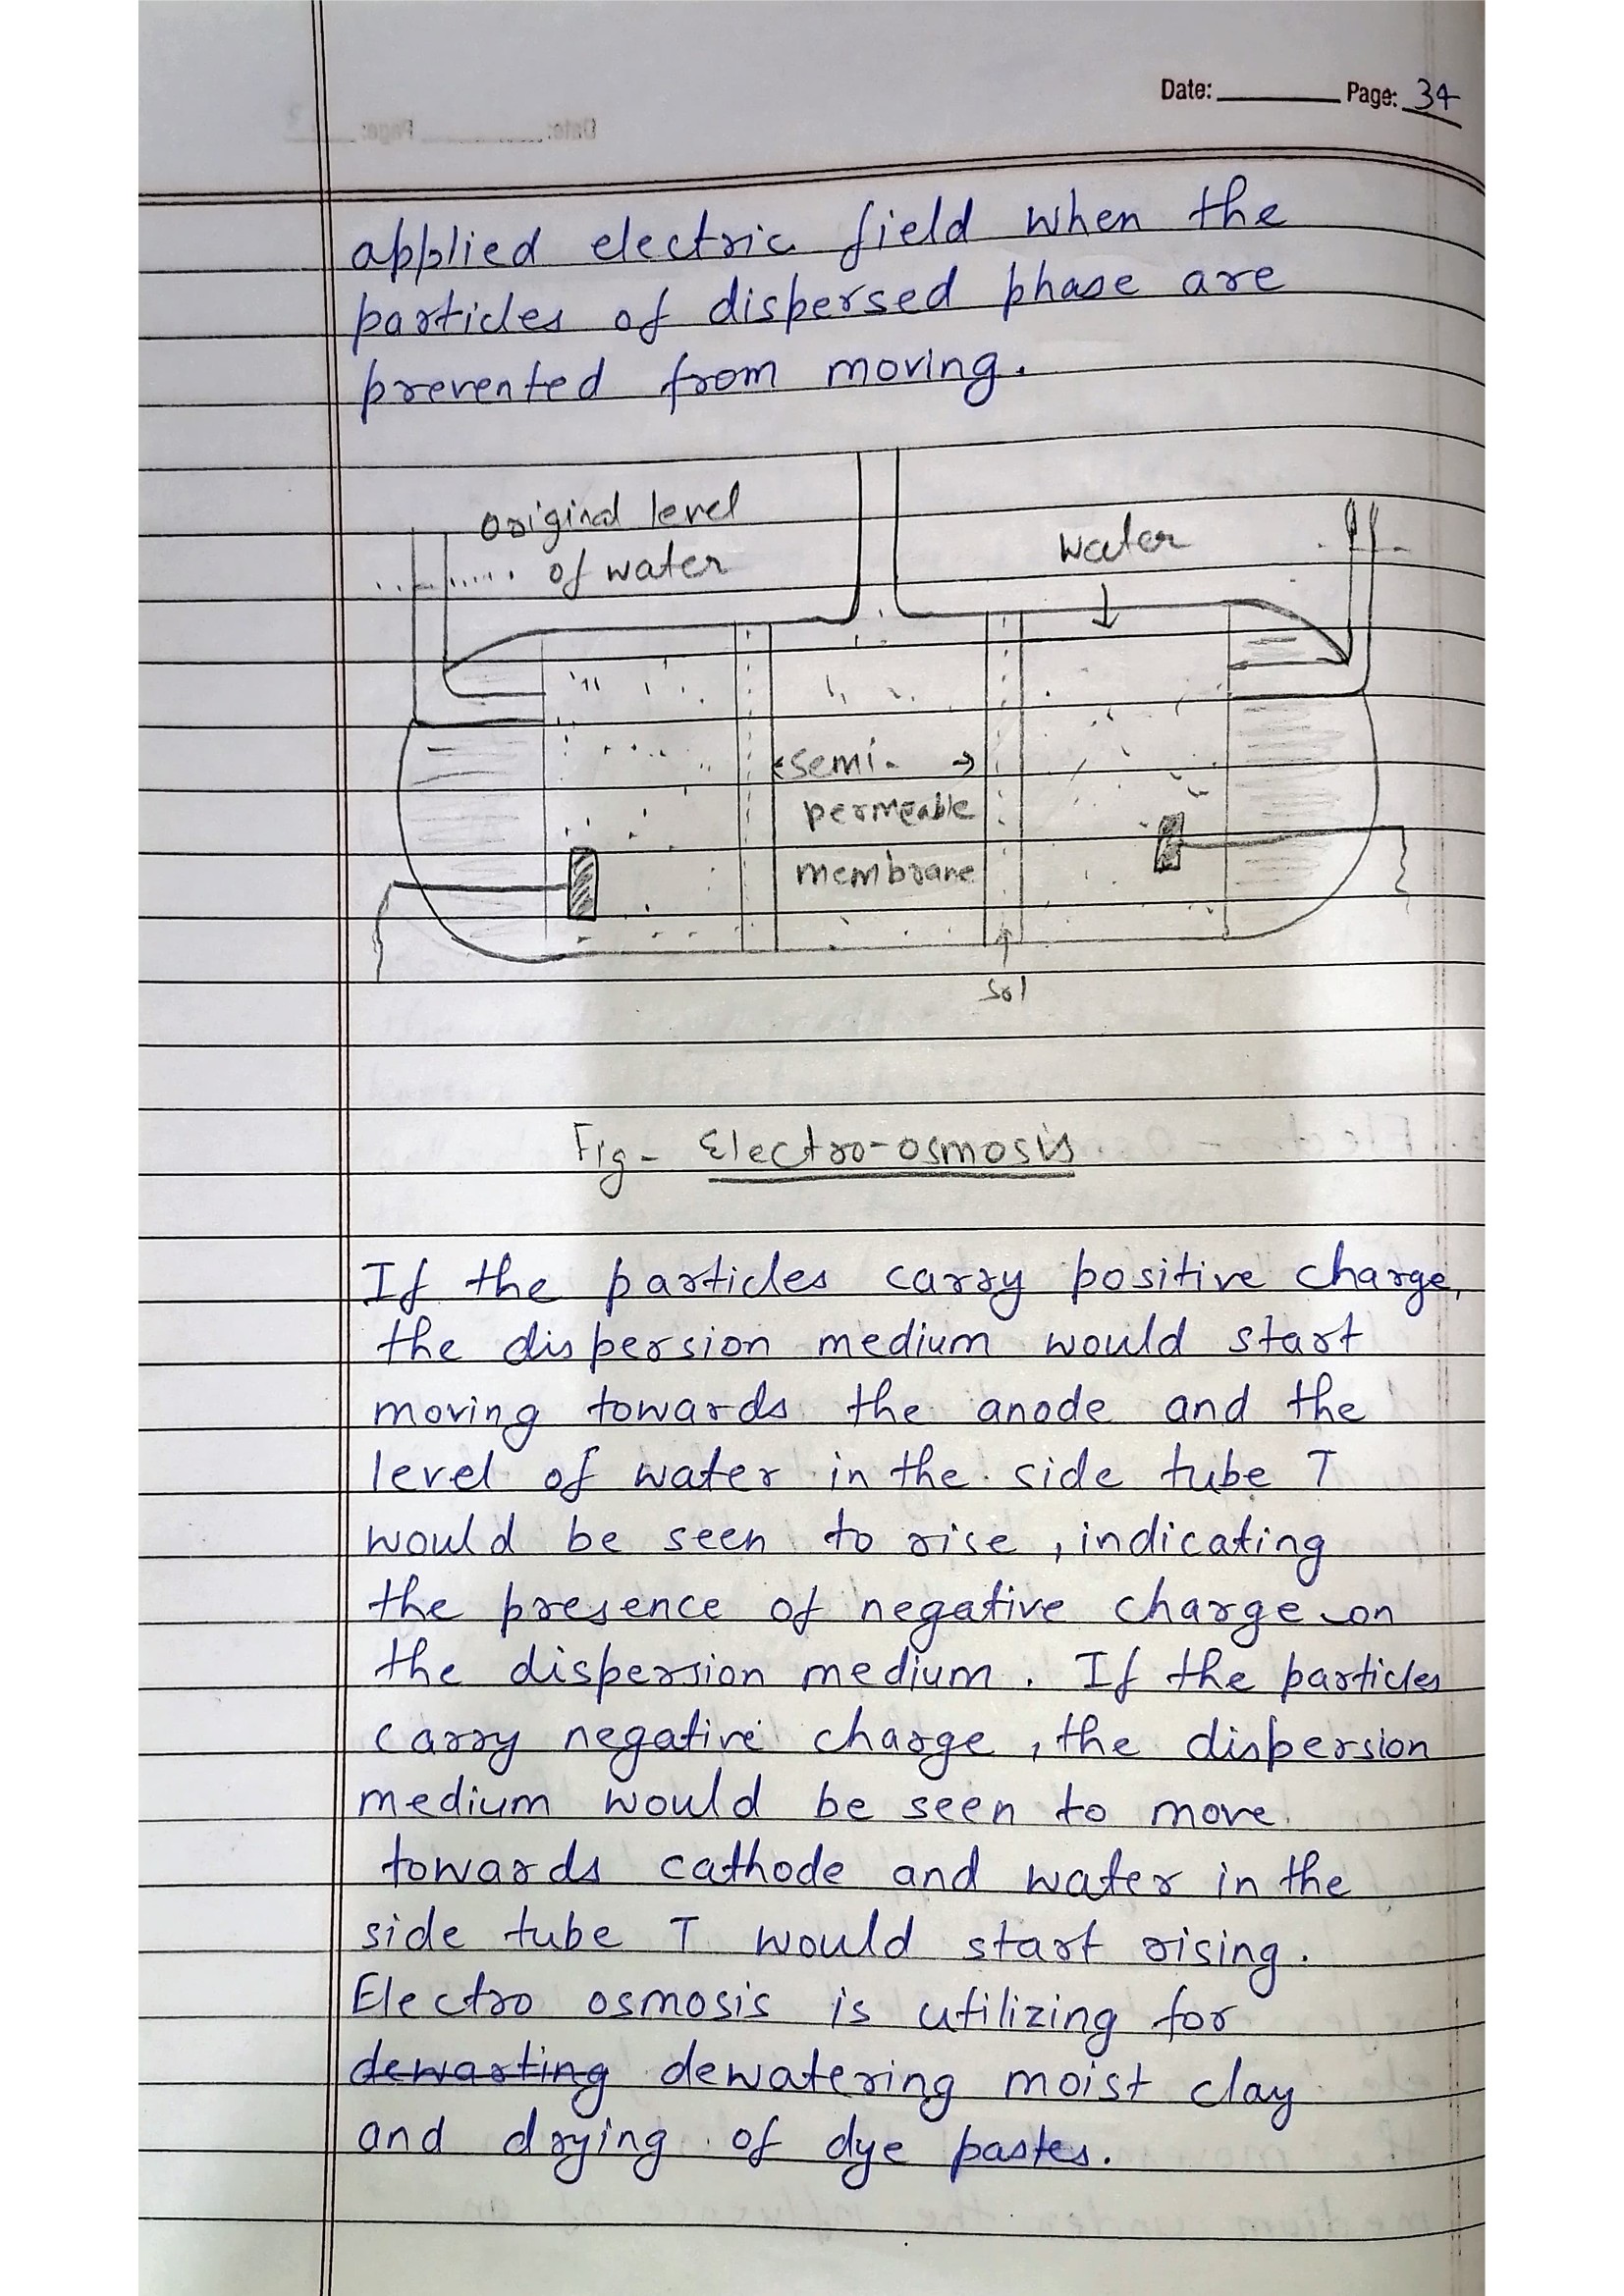 Date: ________ Page: 34
applied electric field when the
particles of dispersed phase are
prevented from moving.
original level
of water
water
semi-
permeable
membrane
sol
Fig- Electro-osmosis
If the particles carry positive charge,
the dispersion medium would start
moving towards the anode and the
level of water in the side tube T
would be seen to rise, indicating
the presence of negative charge on
the dispersion medium. If the particles
carry negative charge, the dispersion
medium would be seen to move
towards cathode and water in the
side tube T would start rising.
Electro osmosis is utilizing for
dewarting dewatering moist clay
and drying of dye pastes.